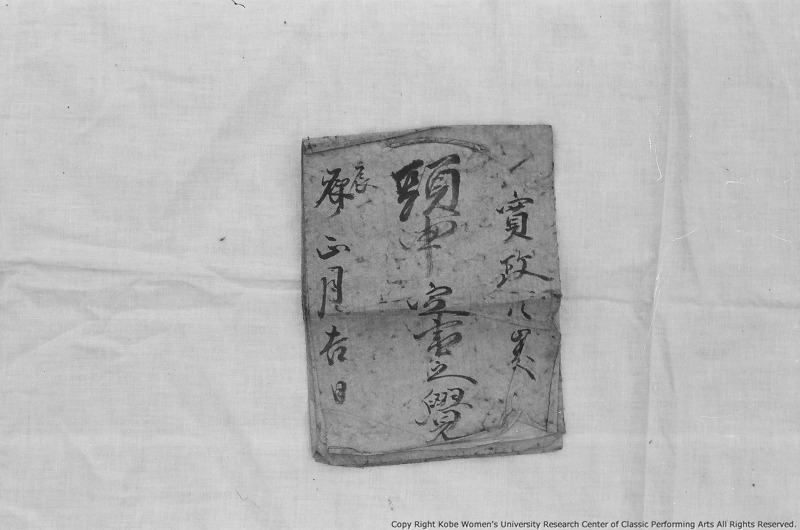 寛政八歳
頭申定書之覺
辰
正月吉日
Copy Right Kobe Women's University Research Center of Classic Performing Arts All Rights Reserved